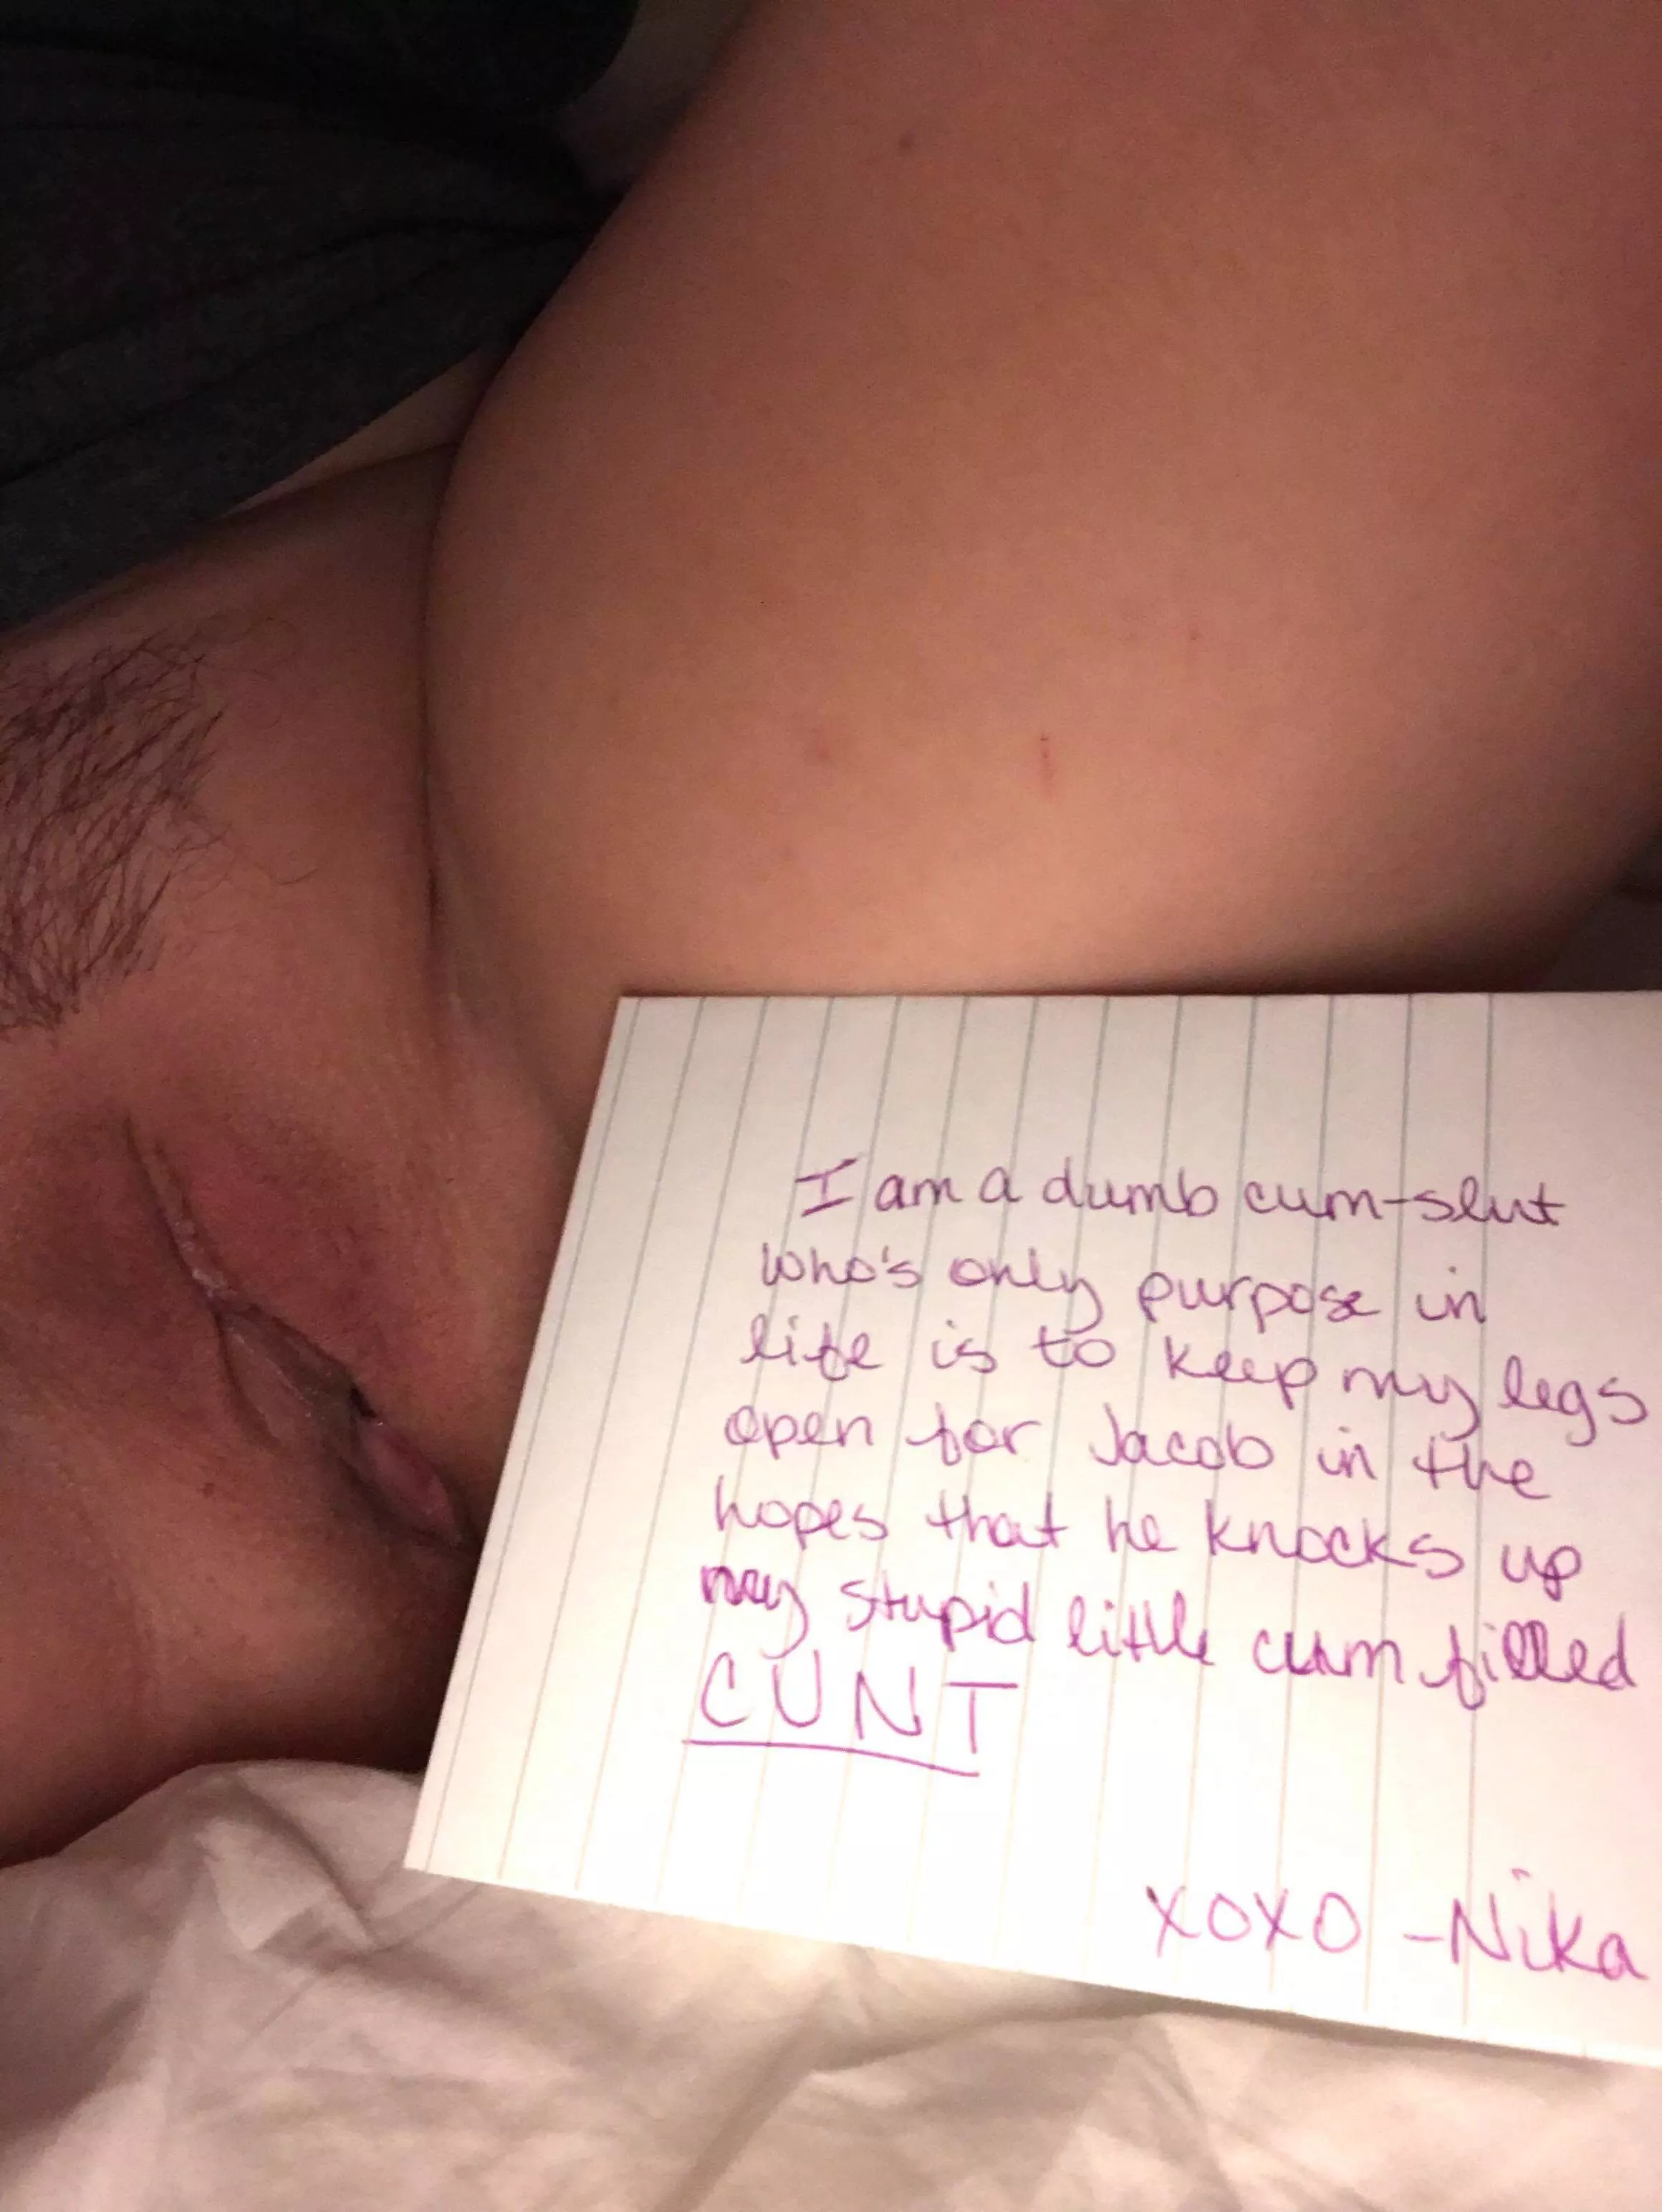 I am a dumb cum-slut
who's only purpose in
life is to keep my legs
open for Jacob in the
hopes that he knocks up
my stupid little cum filled
CUNT
XOXO -Nika